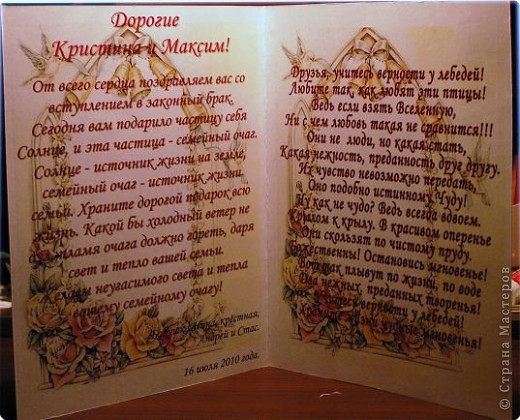 Дорогие
Кристина и Максим!
От всего сердца поздравляем вас со
вступлением в законный брак.
Сегодня вам подарило частицу себя
Солнце, и эта частица - семейный очаг.
Солнце - источник жизни на земле,
семейный очаг - источник жизни
семьи. Храните дорогой подарок всю
жизнь. Какой бы холодный ветер не
дул, пламя очага должно гореть, даря
свет и тепло вашей семьи.
Желаем неугасимого света и тепла
вашему семейному очагу!
крёстная,
Андрей и Стас.
16 июля 2010 года.
Друзья, учитесь верности у лебедей!
Любите так, как любят эти птицы!
Ведь если взять Вселенную,
Ни с чем любовь такая не сравнится!!!
Они не люди, но какая стать,
Какая нежность, преданность друг другу.
Их чувство невозможно передать,
Оно подобно истинному Чуду!
Ну как не чудо? Ведь всегда вдвоем.
Крылом к крылу. В красивом оперенье
Они скользят по чистому пруду.
Божественны! Остановись мгновенье!
Вот так плывут по жизни, по воде
Два нежных, преданных творенья!
Учитесь верности у лебедей!
Храните чудные мгновенья!
© Страна Мастеров